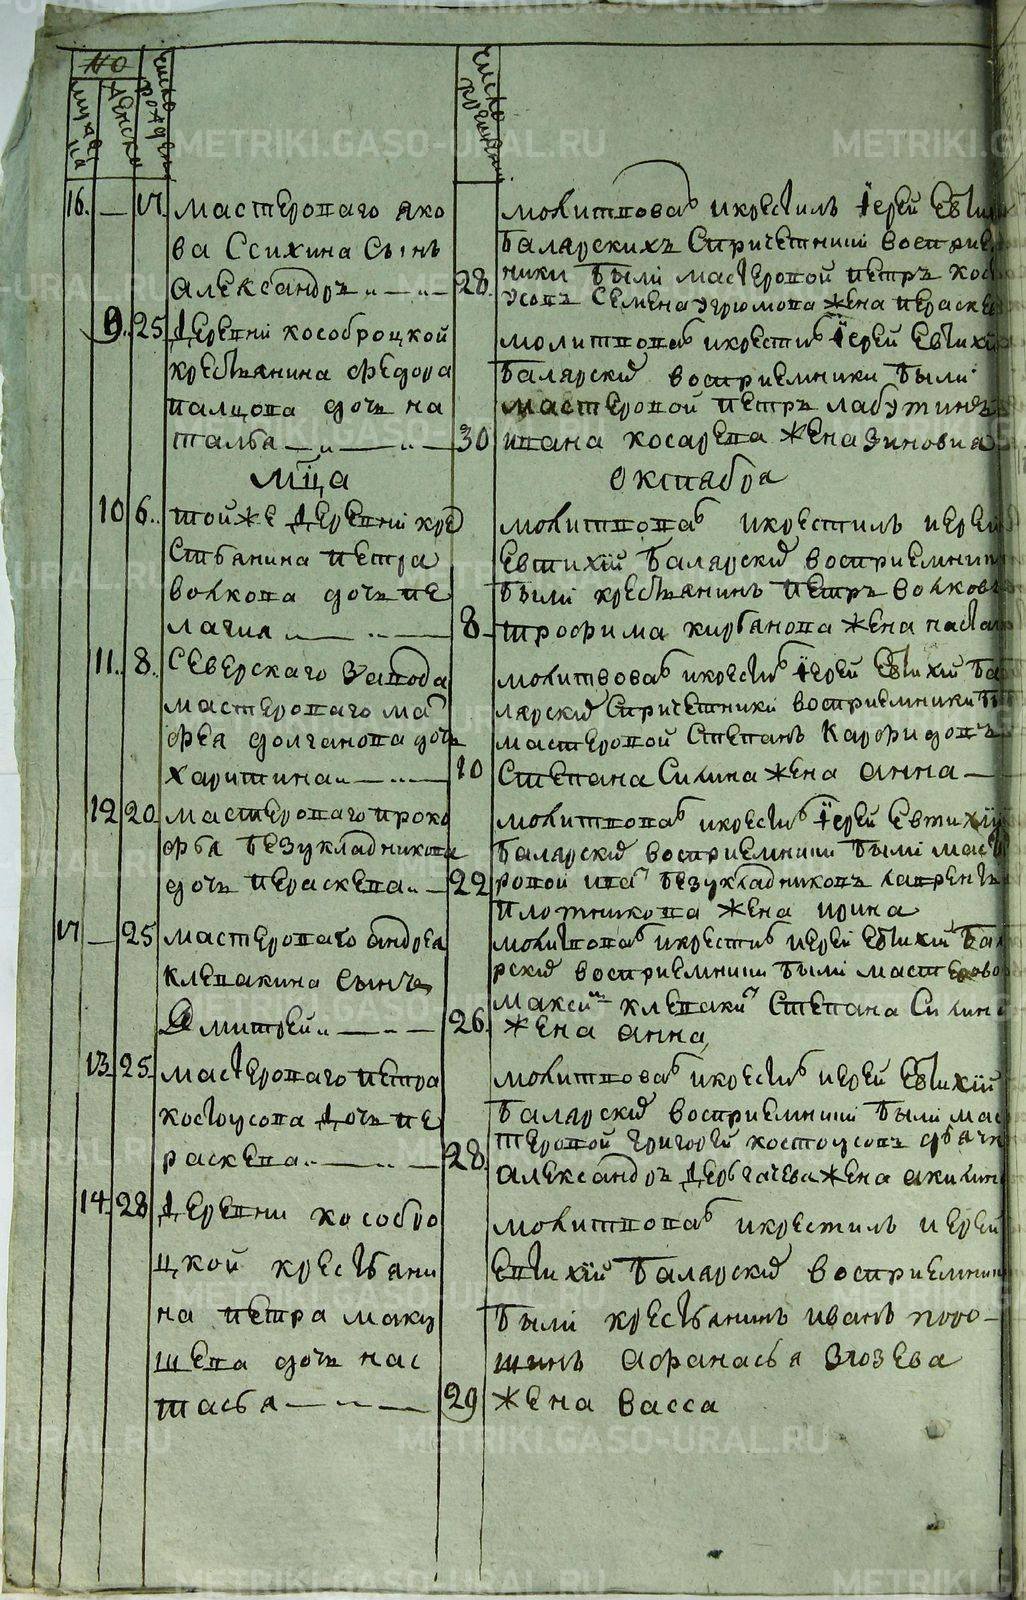 METRIKI.GASO-URAL.RU
№
мужеска
женска
число рождения
число крещения
16. — 17. мастероваго яко
ва Ссихина Сынъ
Александръ 28
молитвовалъ и крестилъ їерей Евти
Балярскихъ С причетники восприе
ники были мастеровой петръ кос
усовъ Семена угрюмова жена пераске
9. 25. Деревни кособроцкой
крестьянина федора
палцова дочь на
талья 30
молитвовалъ и крестилъ їерей Евтихїй
Балярскїй восприемники были
мастеровой петръ лабутинъ
ивана косарева жена зиновиа
мца октября
10 6. той же деревни кре
стьянина петра
волкова дочь пе
лагия 8
молитвовалъ и крестилъ иерей
Евтихїй Балярскїй восприемник
были крестьянинъ петръ волковъ
трофима курбанова жена наста
11. 8. Северскаго завода
мастероваго мат
фея долганова дочь
харитина 10
молитвовалъ и крестилъ їерей Евтихїй Ба
лярскїй С причетники восприемники б
мастеровой Степанъ Карфидовъ
Степана Силина жена анна
12 20. мастероваго проко
фья безукладникова
дочь пераскева 22
молитвовалъ и крестилъ їерей Евтихїй
Балярскїй восприемники были масте
ровой ива безукладниковъ лаврентья
плотникова жена ирина
17 — 25 мастероваго андреа
клепакина сынъ
Дмитрей 26.
молитвовалъ и крестилъ иерей Евтихїй Баля
рскїй восприемники были мастерово
максим клепаки Степана Силина
жена анна
13 25. мастероваго петра
костоусова дочь пе
раскева 28
молитвовалъ и крестилъ иерей Евтихїй
Балярскїй восприемники были мас
теровой григорей костоусовъ
Александръ Дергачева жена акилин
14. 28 Деревни кособро
цкой крестьяни
на петра маку
шева дочь нас
тасья 29
молитвовалъ и крестилъ иерей
Евтихїй Балярскїй восприемники
были крестьянинъ иванъ поро-
шинъ Афанасья Зюзева
жена васса